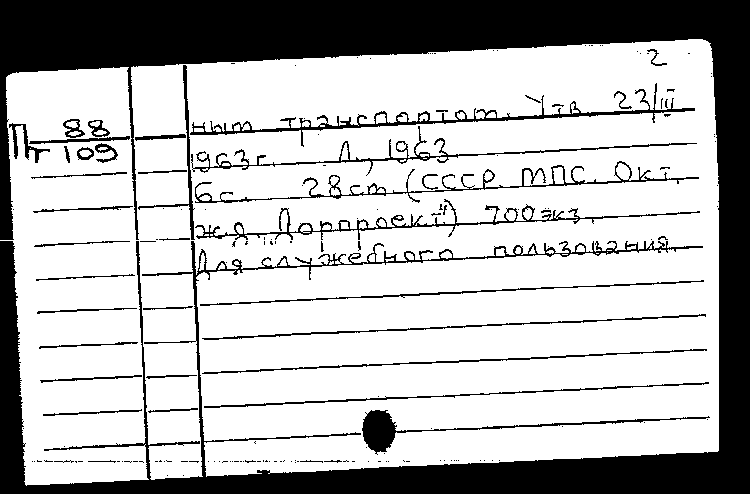 2
П 88
т 109
ным транспортом. Утв. 23/III
1963 г. Л., 1963
6 с. 28 см. (СССР. МПС. Окт.
ж.д. „Дорпроект") 700 экз.
Для служебного пользования.